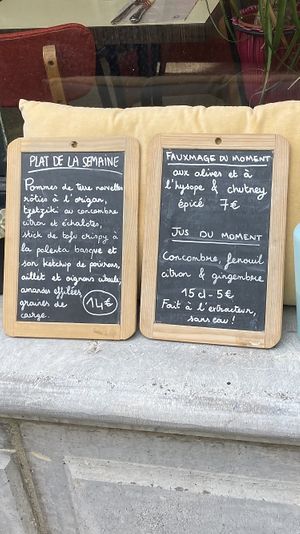 PLAT DE LA SEMAINE
Pommes de terre nouvelles
rôties à l'origan,
tzatziki au concombre
citron et échalotes,
stick de tofu crispy à
la polenta basque et
son ketchup de poivrons,
aillet et oignons ciboule,
amandes effilées
graines de
carge.
14€
FAUXMAGE DU MOMENT
aux olives et à
l'hysope & chutney
épicé 7€
JUS DU MOMENT
Concombre, fenouil
citron & gingembre
15 cl - 5€
Fait à l'extracteur,
sans eau !